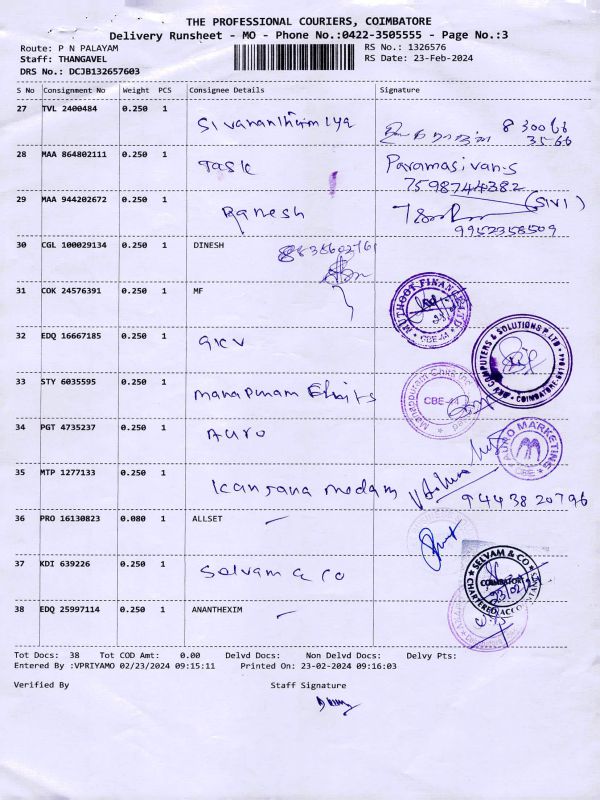 THE PROFESSIONAL COURIERS, COIMBATORE
Delivery Runsheet - MO - Phone No.:0422-3505555 - Page No.:3
Route: P N PALAYAM RS No.: 1326576
Staff: THANGAVEL RS Date: 23-Feb-2024
DRS No.: DCJB132657603
S No Consignment No Weight PCS Consignee Details Signature
27 TVL 2400484 0.250 1
8 30066
3566
28 MAA 864802111 0.250 1 Task Paramasivan.s
7598744382
29 MAA 944202672 0.250 1 Ranesh (SIVI)
9952358509
30 CGL 100029134 0.250 1 DINESH 8838602761
31 COK 24576391 0.250 1 MF
MUTHOOT FINANCE LTD
CBE-44
32 EDQ 16667185 0.250 1
COMPUTERS & SOLUTIONS P LTD
COIMBATORE
33 STY 6035595 0.250 1 manapuram Chits
CBE-44
34 PGT 4735237 0.250 1 Auro
AURO MARKETING
CBE
35 MTP 1277133 0.250 1 kanjana madam 9443820796
36 PRO 16130823 0.080 1 ALLSET
37 KDI 639226 0.250 1 Selvam & co
SELVAM & CO
CHARTERED ACCOUNTANTS
COIMBATORE
38 EDQ 25997114 0.250 1 ANANTHEXIM
Tot Docs: 38 Tot COD Amt: 0.00 Delvd Docs: Non Delvd Docs: Delvy Pts:
Entered By :VPRIYAMO 02/23/2024 09:15:11 Printed On: 23-02-2024 09:16:03
Verified By Staff Signature